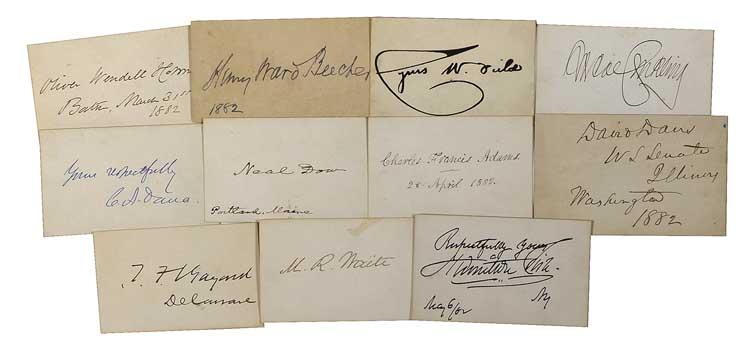 Oliver Wendell Holmes
Boston, March 31st
1882
Henry Ward Beecher
1882
Cyrus W. Field
Yours respectfully
C. A. Dana.
Neal Dow
Portland, Maine
Charles Francis Adams
28 April 1882.
David Davis
U S Senate
Illinois
Washington
1882
T. F. Bayard
Delaware
M. R. Waite
Respectfully Yours
Hamilton Fish
May 6/82 NY